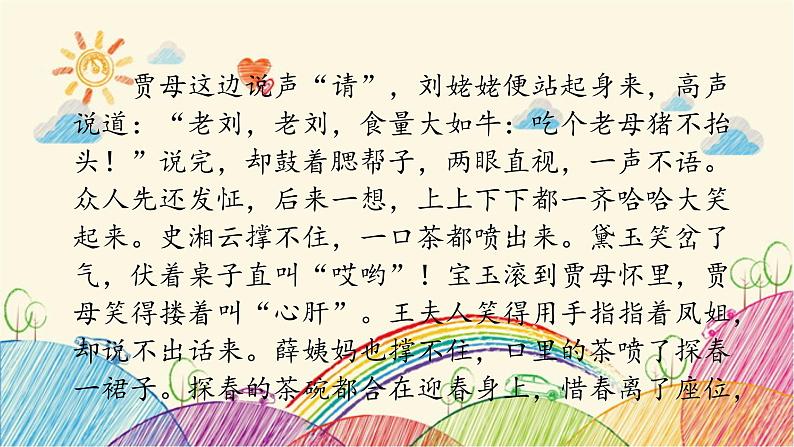 贾母这边说声“请”，刘姥姥便站起身来，高声
说道：“老刘，老刘，食量大如牛：吃个老母猪不抬
头！”说完，却鼓着腮帮子，两眼直视，一声不语。
众人先还发怔，后来一想，上上下下都一齐哈哈大笑
起来。史湘云撑不住，一口茶都喷出来。黛玉笑岔了
气，伏着桌子直叫“哎哟”！宝玉滚到贾母怀里，贾
母笑得搂着叫“心肝”。王夫人笑得用手指指着凤姐，
却说不出话来。薛姨妈也撑不住，口里的茶喷了探春
一裙子。探春的茶碗都合在迎春身上，惜春离了座位，